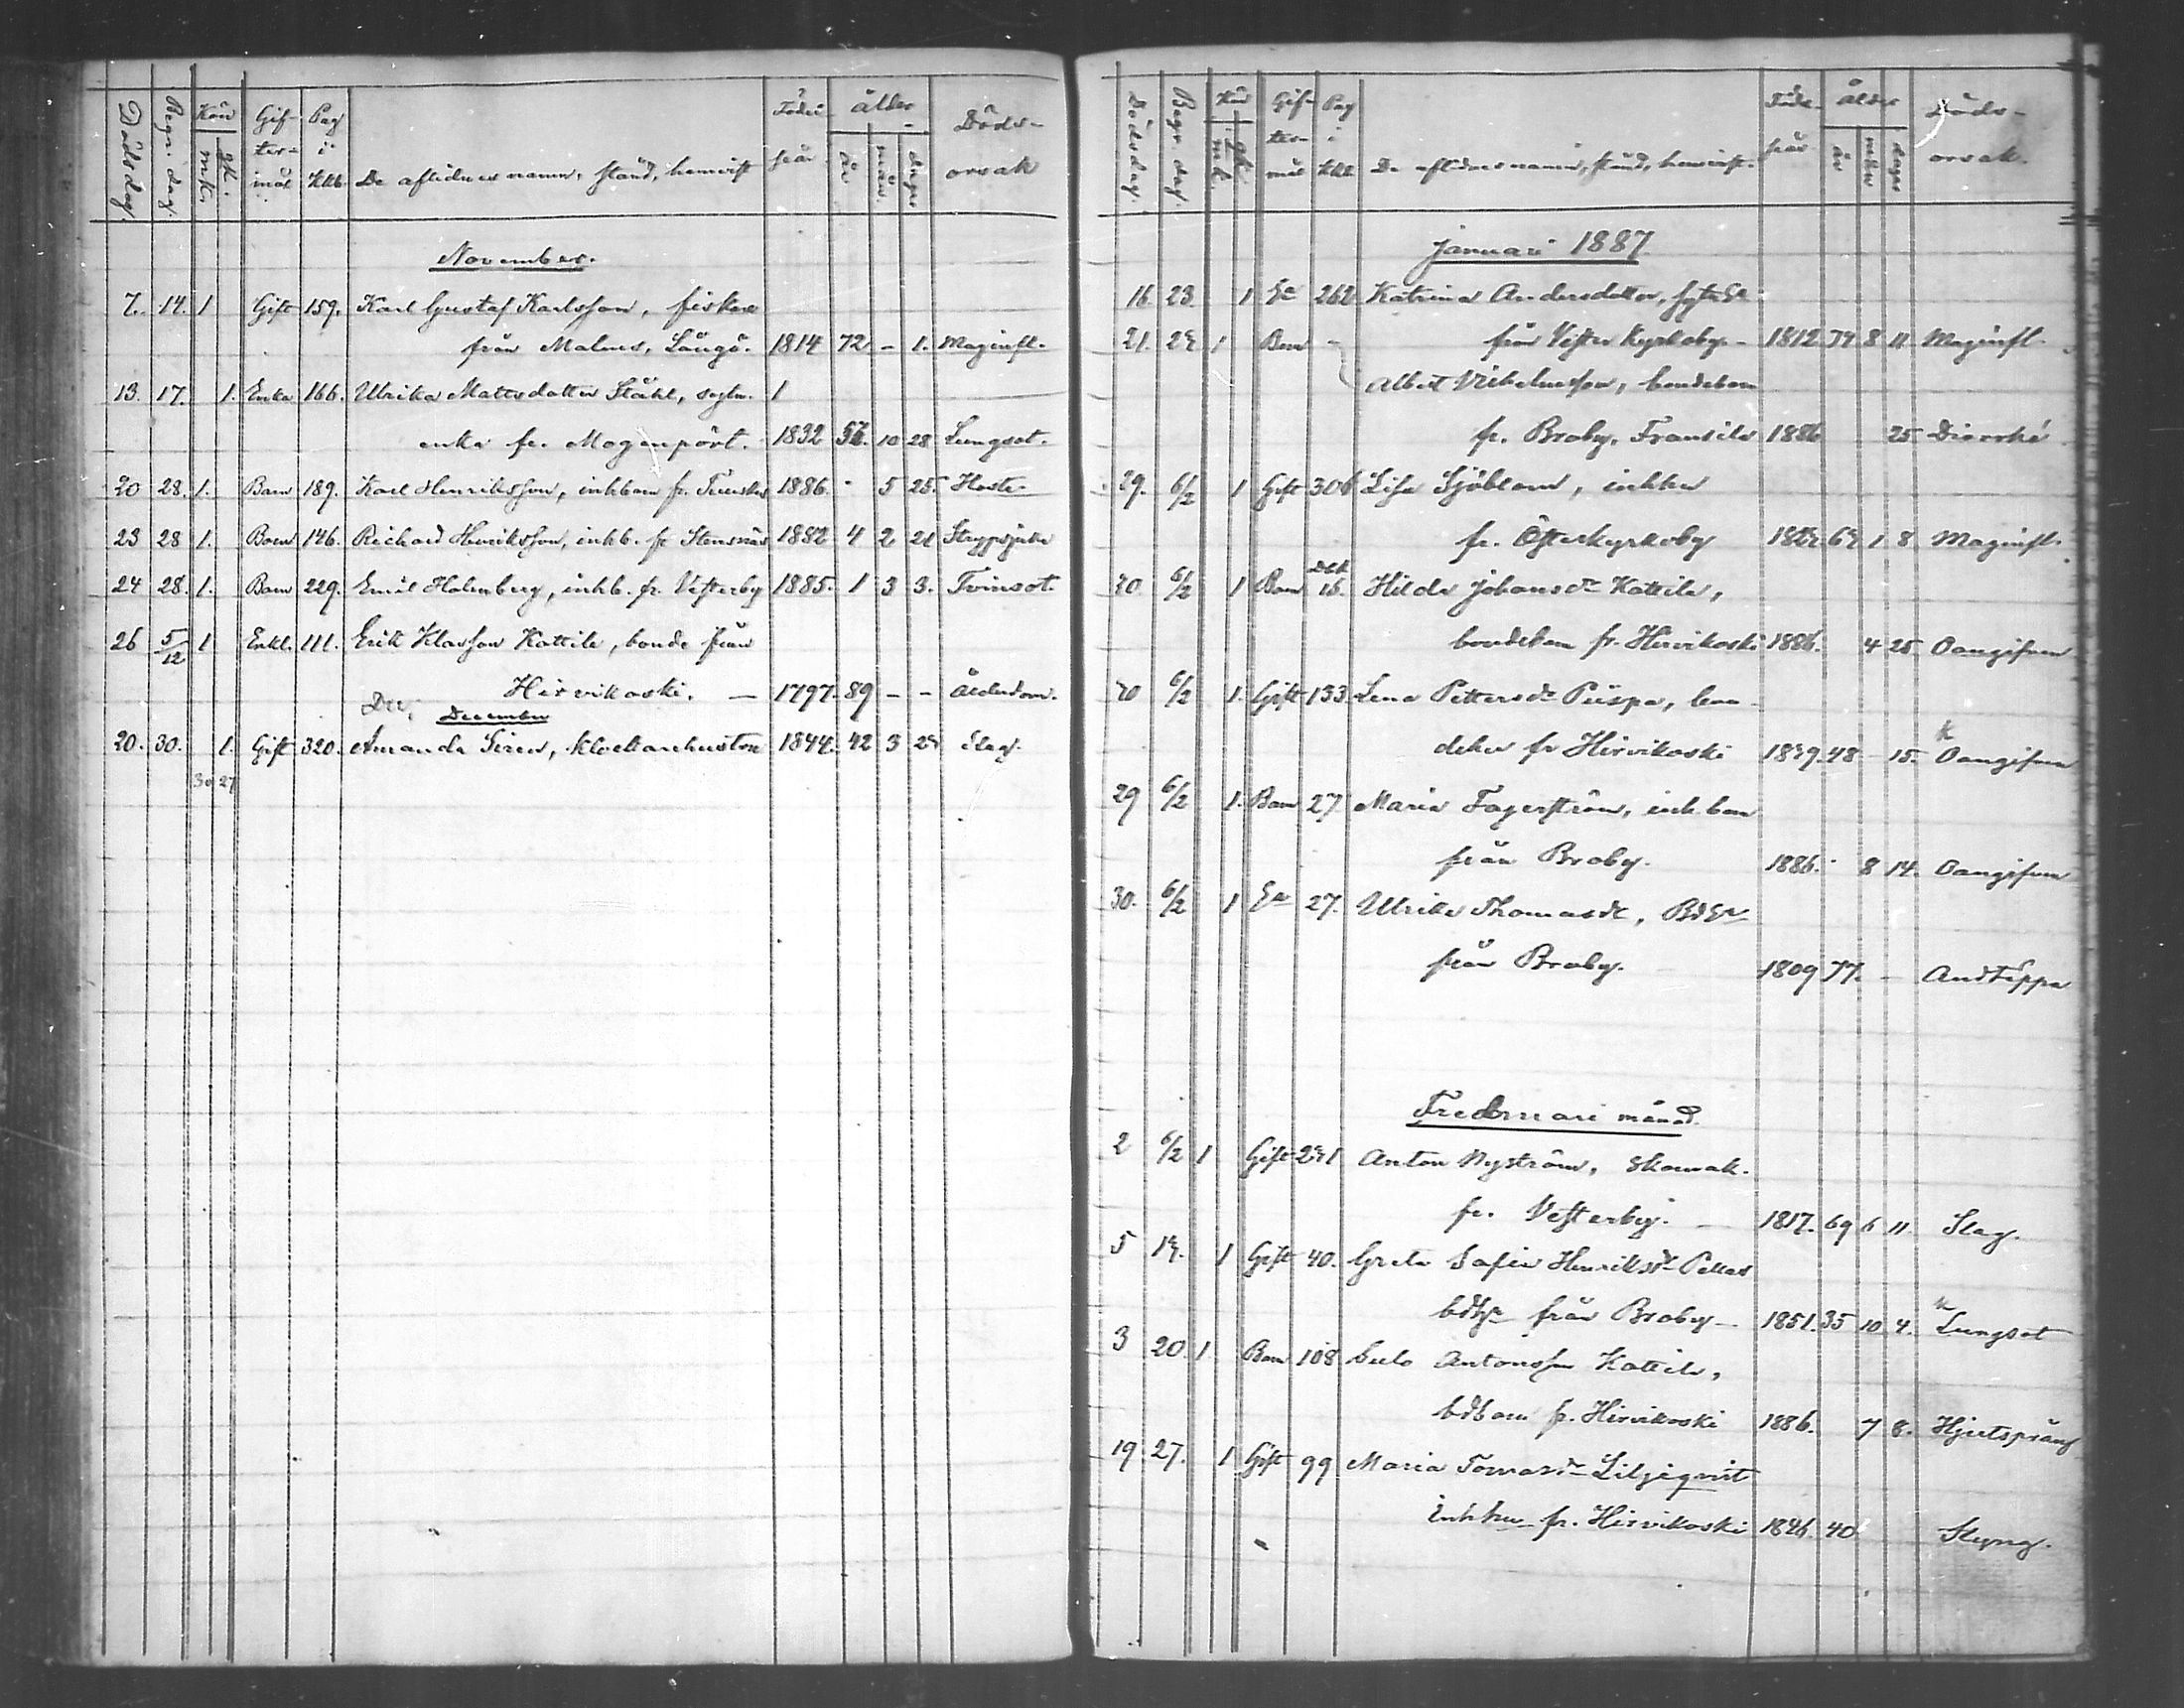 Dödsdag. Begr. dag. Kön mk. qk. Giftermål Pag i Kbb. De aflidnes namn, stånd, hemvist Födelseår ålder år mån. dagar Dödsorsak
November.
7. 14. 1 Gift 159. Karl Gustaf Karlsson, fiskare
från Malmes, Långö. 1814 72 - 1. Maginfl.
13. 17. 1. Enka 166. Ulrika Mattsdotter Ståhl,
enka fr. Mogenpört. 1832 10 28 Lungsot.
20 28. 1. Barn 189. Karl Henriksson, inhbarn fr. 1886. - 5 25. Hosta
23 28 1. Barn 146. Richard Henriksson, inhb. fr Stensnäs 1882 4 2 21 Strypsjuka
24 28. 1. Barn 229. Emil Holmberg, inhb. fr. Vesterby 1885. 1 3 3. Tvinsot.
26 5/12 1 Enkl. 111. Erik Klasson Kattila, bonde från
Hirvikoski. — 1797. 89 - - Ålderdom.
Dec. December
20. 30. 1. Gift 320. Amanda Siren, klockarehustru 1844. 42 3 29 Slag.
30 27
Dödsdag. Begr. dag. Kön mk. qk. Giftermål Pag i Kbb. De aflidnes namn, stånd, hemvist. Födelseår ålder år mån dagar Dödsorsak.
Januari 1887.
16 23. 1 Ea 262 Katrina Andersdotter,
21. 29 1 Barn - från Vester Kyrkoby - 1812. 74 8 11 Maginfl.
Albert Vilhelmsson, bondebarn
fr. Broby, Fransila 1886 25 Diorrhé
29. 6/2 1 Gift 306 Lisa Sjöblom, inhhu
fr. Österkyrkoby 1 8. Maginfl.
30 6/2 1 Barn 16. Hilda Johansdr Kattila,
bondebarn fr. Hirvikoski 1886. 4 25 Oangifven
30 6/2 1. Gift 133. Lena Pettersdr Piispa, bon-
dehu fr Hirvikoski 1839. 48 - 15. Oangifven
29 6/2 1. Barn 27 Maria Fagerström, inh.barn
från Broby. 1886. - 8 14. Oangifven
30. 6/2 1 Ea 27. Ulrika Thomasdr, BdEa
från Broby. 1809 77. - Andtäppa
Fredbruari månad.
2 6/2 1 Gift 231 Anton Nyström, skomak.
fr. Vesterby. — 1817. 69 6 11. Slag.
5 13. 1 Gift 40. Greta Sofia Henriksdr Pekas
från Broby - 1851. 35 10 4. Lungsot
3 20. 1. Barn 108 Antonsson Kattila,
bdbarn fr. Hirvikoski 1886. 7 8. Hjertsprång
19. 27. 1 Gift 99 Maria Tomasdr Liljeqvist
Inhhu fr. Hirvikoski 1846. 40 Styng.